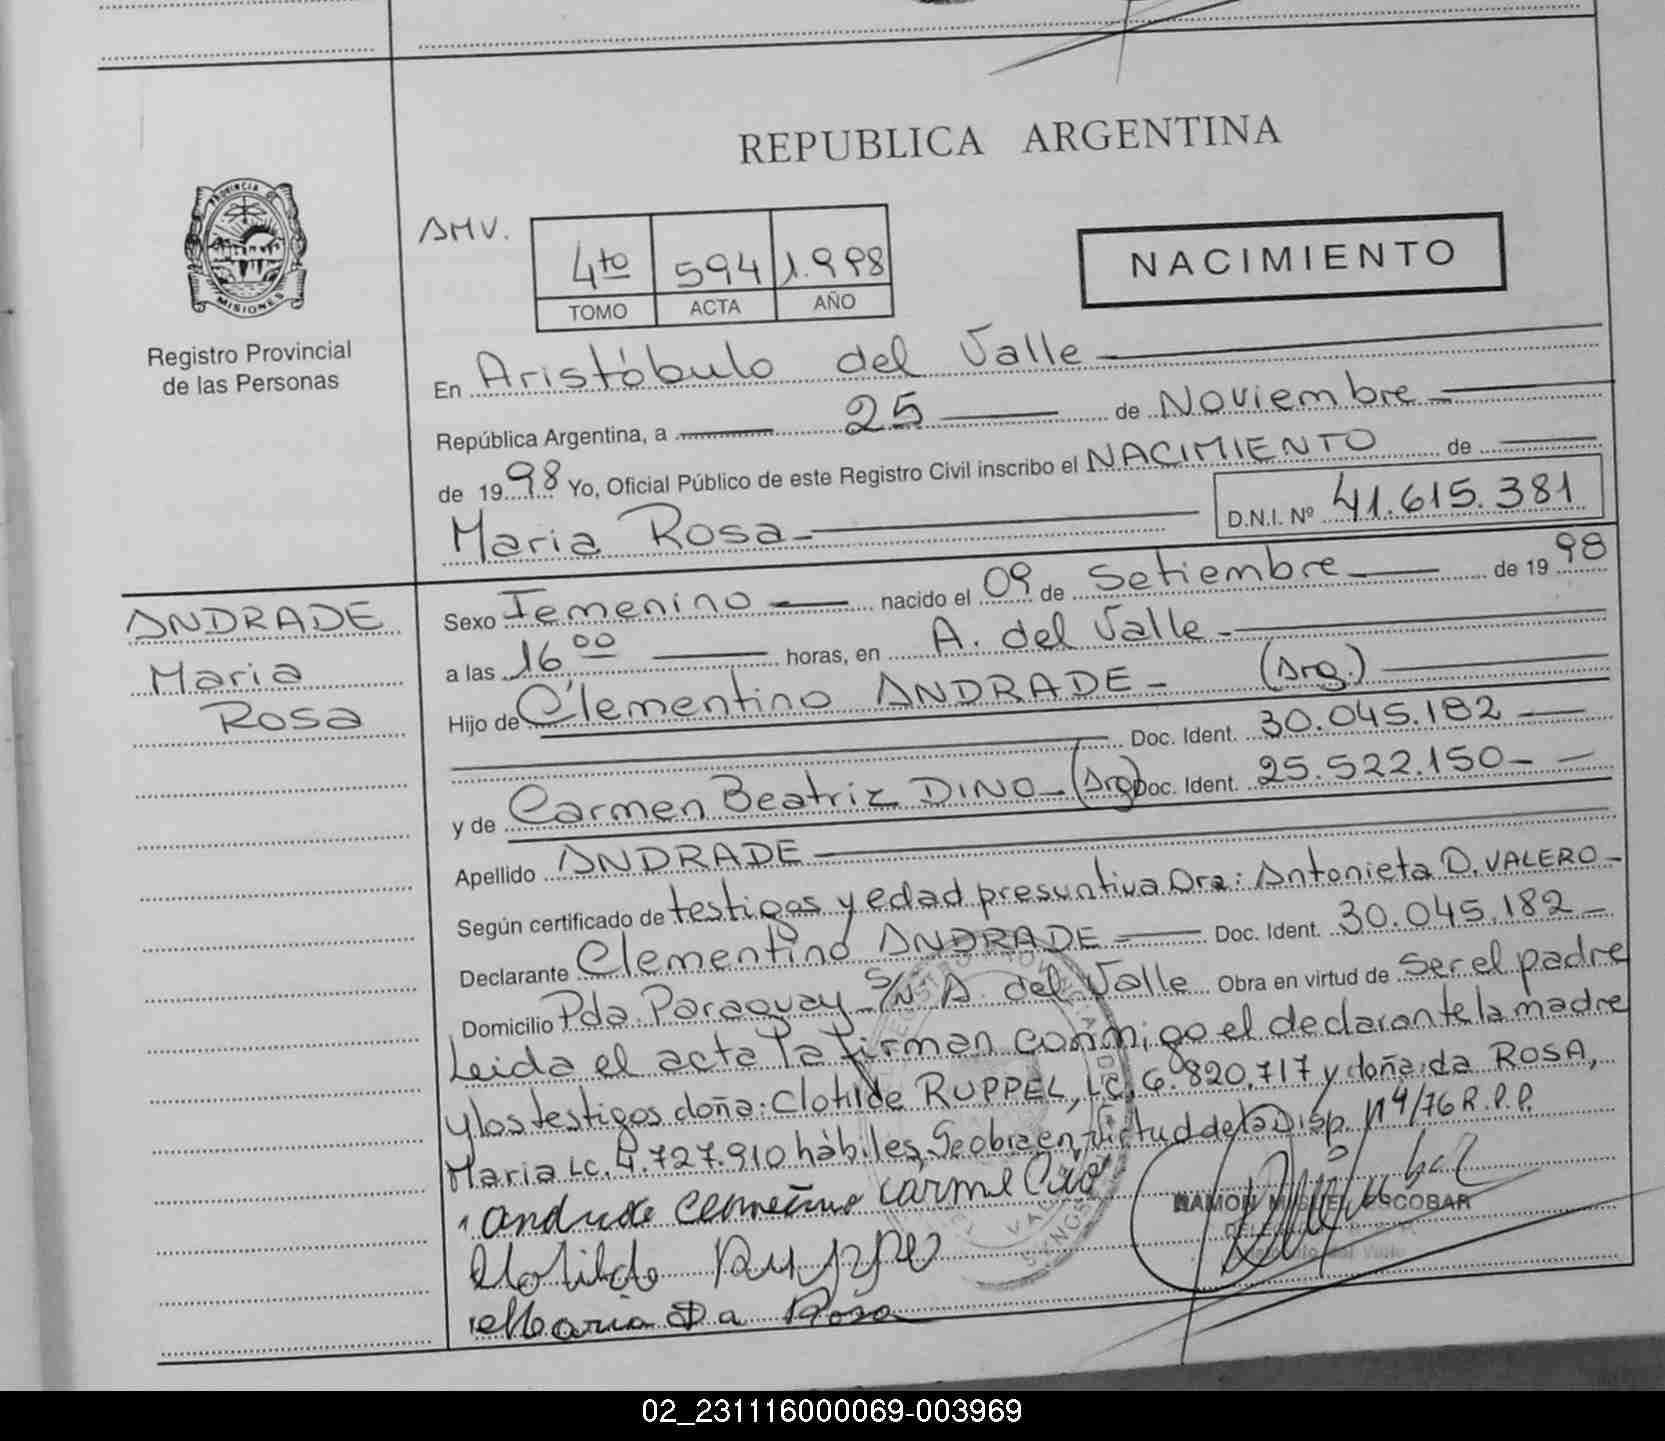 REPUBLICA ARGENTINA
PROVINCIA DE
MISIONES
Registro Provincial
de las Personas
AMV.
4to 594 1.998
TOMO ACTA AÑO
NACIMIENTO
En Aristóbulo del Valle
República Argentina, a 25 de Noviembre
de 1998 Yo, Oficial Público de este Registro Civil inscribo el NACIMIENTO de
Maria Rosa D.N.I. Nº 41.615.381
ANDRADE
Maria
Rosa
Sexo Femenino nacido el 09 de Setiembre de 1998
a las 16 00 horas, en A. del Valle
Hijo de Clementino ANDRADE (Arg.)
Doc. Ident. 30.045.182
y de Carmen Beatriz DINO (Arg) Doc. Ident. 25.522.150
Apellido ANDRADE
Según certificado de testigos y edad presuntiva Dra: Antonieta D. VALERO
Declarante Clementino ANDRADE Doc. Ident. 30.045.182
Domicilio Pda. Paraguay S/N A. del Valle Obra en virtud de Ser el padre
Leida el acta la firman conmigo el declarante la madre
y los testigos doña: Clotilde RUPPEL, LC. 6.820.717 y doña: da ROSA,
Maria LC. 4.727.910 hábiles, Se obra en virtud de la Disp. nº 4/76 R.P.P.
andrade
RAMON MIGUEL ESCOBAR
Clotilde
Maria Da Rosa
02_231116000069-003969